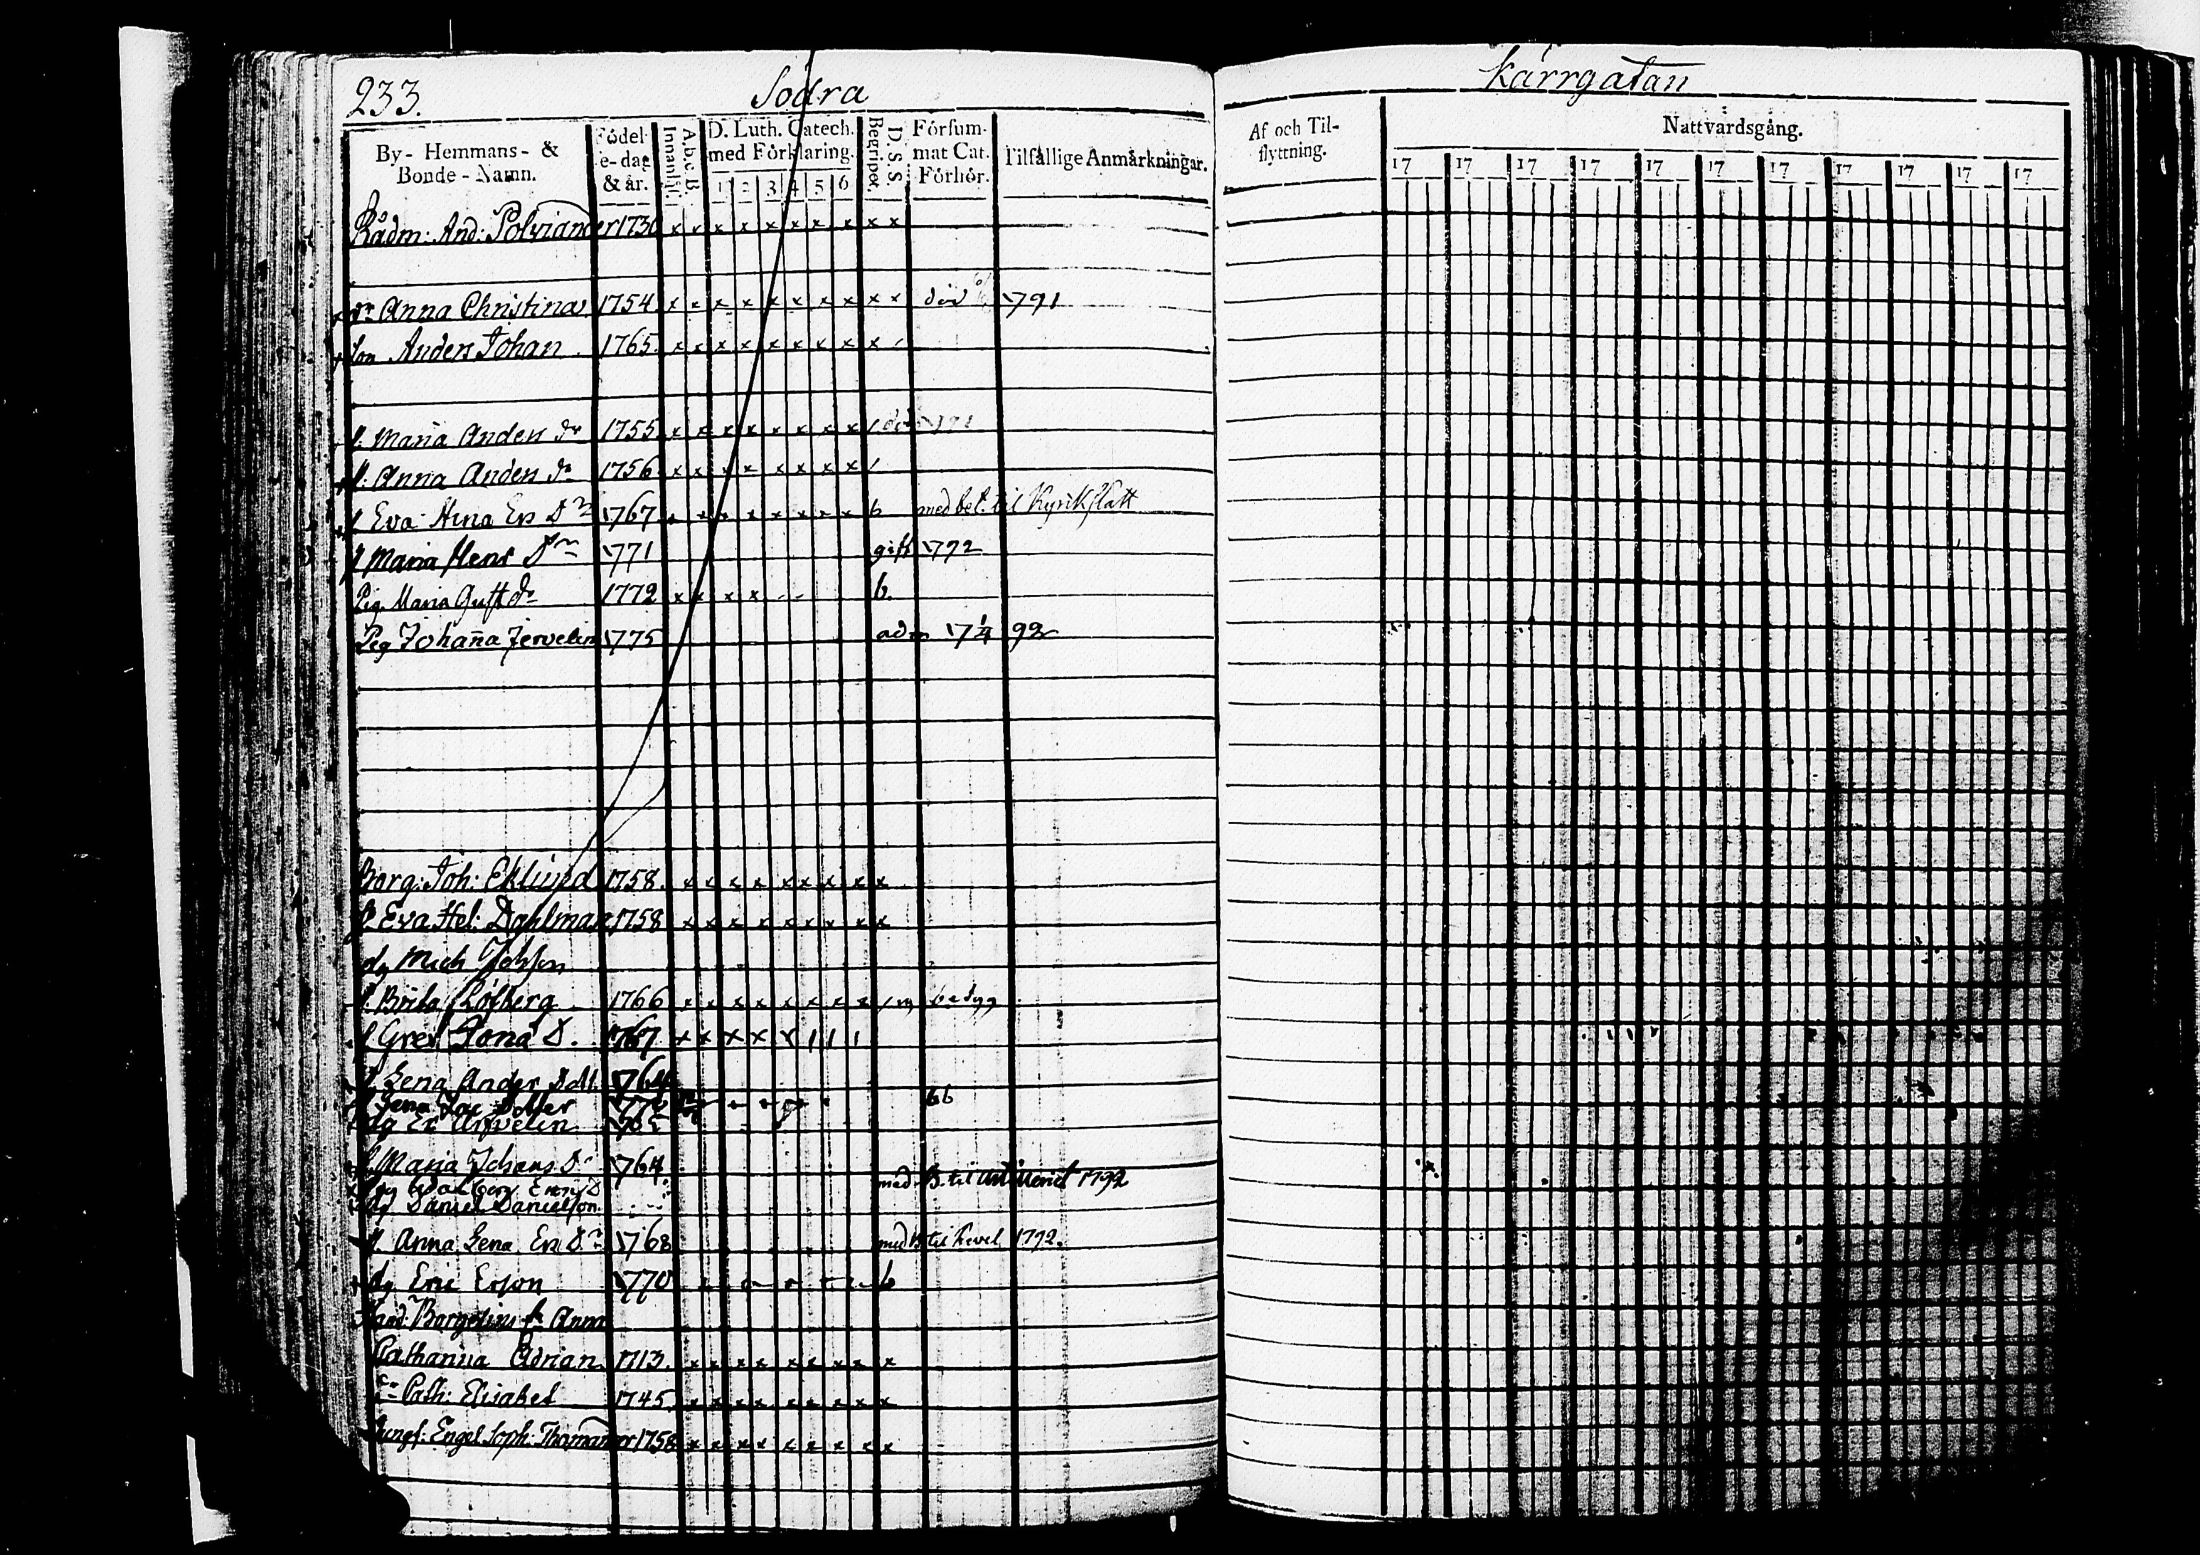 233.
Södra
Kärrgatan
By- Hemmans- & Bonde-Namn.
Födel-e-dag & år.
A,b,c B. Innanläs.
D. Luth. Catech. med Förklaring.
1 2 3 4 5 6
D. S. S. Begriper.
Försum-mat Cat. Förhör.
Tilfällige Anmärkningar.
Af och Til-flyttning.
Nattvardsgång.
17 17 17 17 17 17 17 17 17 17 17
Rådm: And: Polviander 1730 x x x x x x x x x x
dr Anna Christina 1754 x x x x x x x x x x död 1791
son Anders Johan 1765 x x x x x x x x x
p. Maria Anders dr 1755 x x x x x x x x
p. Anna Anders dr 1756 x x x x x x x x
p Eva Ers Dr 1767 b med bet. til Kyrkslätt
p Maria Henr Dr 1771 gift 1792
Pig. Maria Gust dr 1772 x x x x b.
Pig Johanna Jervelin 1775 adm 92
Borg: Joh: Eklund 1758 x x x x x x x x x
h Eva Hel: Dahlman 1758 x x x x x x x x x
dg Mich Johsson
p. Brita Löfberg 1766 x x x x x x x x
p Gret Jona D. 1767 x x x x x
p Lena Anders Dott 1764
p Lena Dotter bb
dg Er Arfvelin
p. Maria Johans Dr 1764
dg Ers D med B. til 1792
dg Daniel Danielson
p. Anna Lena Ers Dr 1768 med B til 1792.
dg Eric Erson 1770 b
Hand: Borgelius fr Anna
Catharina Adrian 1713. x x x x x x x x x
dr Cath: Elisabet 1745 x x x x x x x x x
Jungf: Engel Soph: 1758 x x x x x x x x x